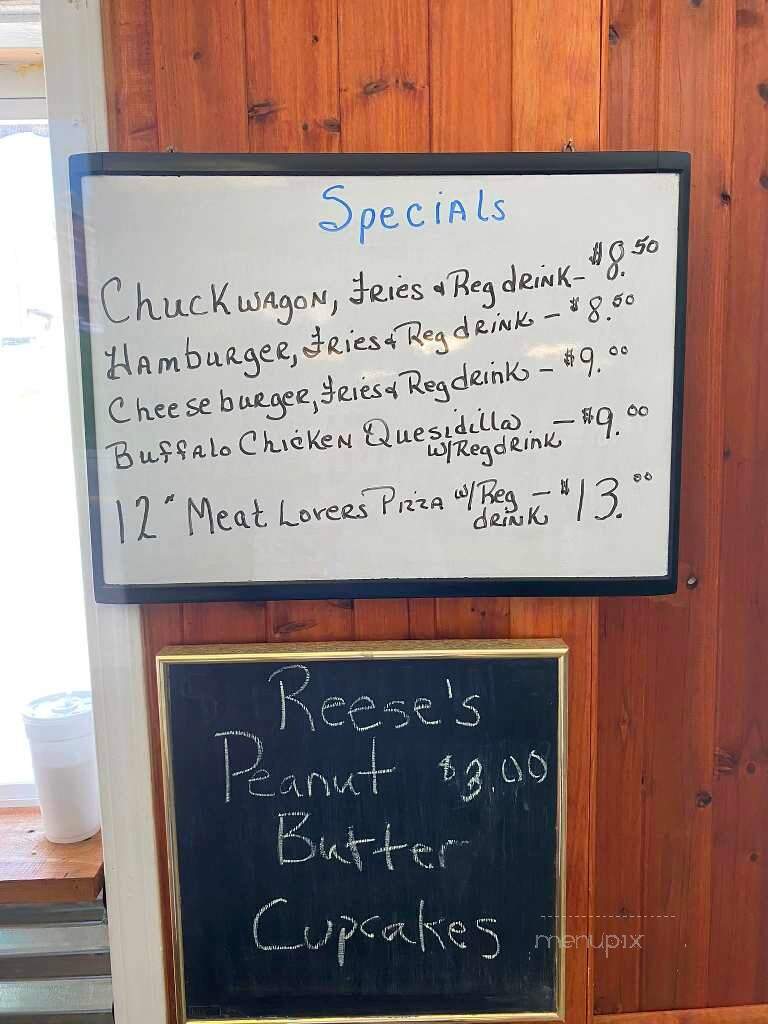 Specials
Chuckwagon, Fries & Reg drink - $8.50
Hamburger, Fries & Reg drink - $8.50
Cheeseburger, Fries & Reg drink - $9.00
Buffalo Chicken Quesidilla - $9.00
w/Reg drink
12" Meat Lovers Pizza w/Reg - $13.00
drink
Reese's
Peanut $3.00
Butter
Cupcakes
menupix